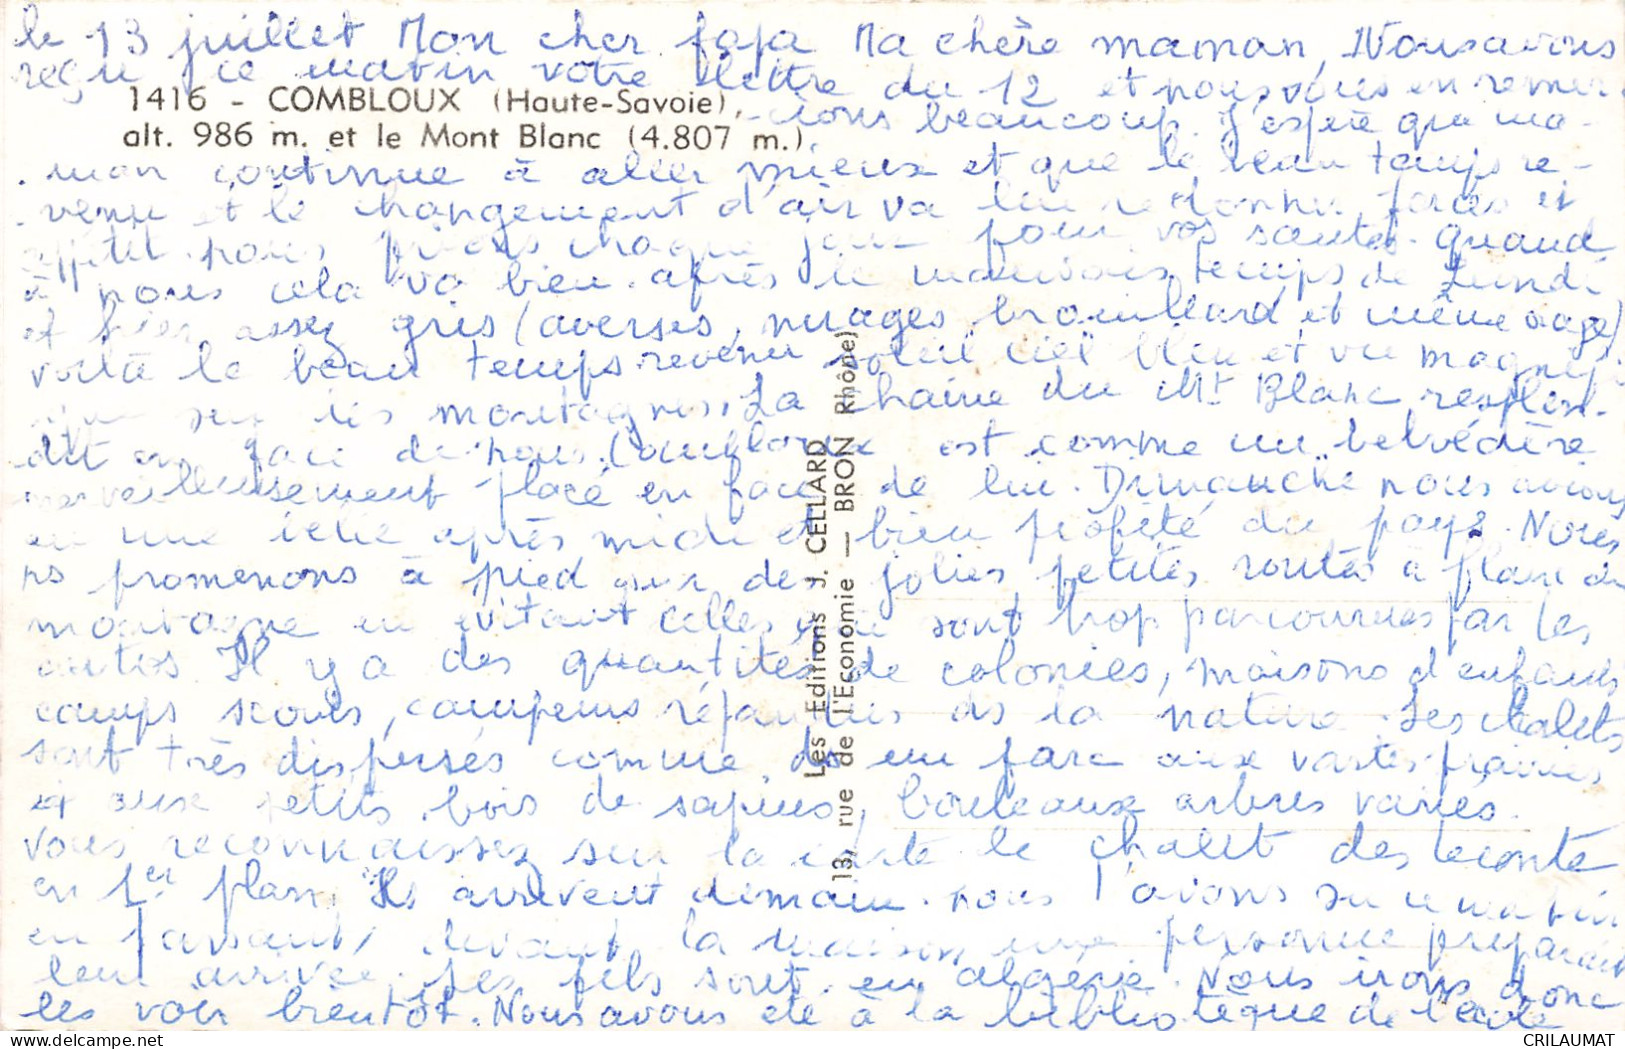 le 13 juillet Mon cher papa Ma chère maman, Nous avons
reçu ce matin votre lettre du 12 et nous vous en remer
1416 - COMBLOUX (Haute-Savoie),
-cions beaucoup. J'espère que ma-
alt. 986 m. et le Mont Blanc (4.807 m.)
man continue à aller mieux et que le beau temps re-
venu et le changement d'air va lui redonner forces et
appétit. nous prions chaque jour pour vos santés. Quand
à nous cela va bien. après le mauvais temps de Lundi
et hier assez gris (averses, nuages, brouillard et même orage)
voilà le beau temps revenu soleil ciel bleu et vue magnifi
que sur les montagnes. La chaine du Mt Blanc resplen-
dit en face de nous. Combloux est comme un belvédère
merveilleusement placé en face de lui. Dimanche nous avions
eu une belle après midi et bien profité du pays. Nous
ns promenons à pied sur de jolies petites routes à flanc de
montagne en évitant celles qui sont trop parcourues par les
autos. Il y a des quantités de colonies, maisons d'enfants
camps scouts, campeurs répandus ds la nature. Les chalets
sont très dispersés comme ds un parc aux vastes prairies
et aux petits bois de sapins, bouleaux arbres variés.
vous reconnaissez sur la carte le chalet des Leconte
en 1er plan. Ils arrivent demain. nous l'avons su ce matin
en passant devant la maison une personne préparait
leur arrivée. Les fils sont en algérie. Nous irons donc
les voir bientôt. Nous avons été à la bibliotèque de l'école
Les Editions J. CELLARD
13, rue de l'Economie — BRON Rhône)
CRILAUMAT